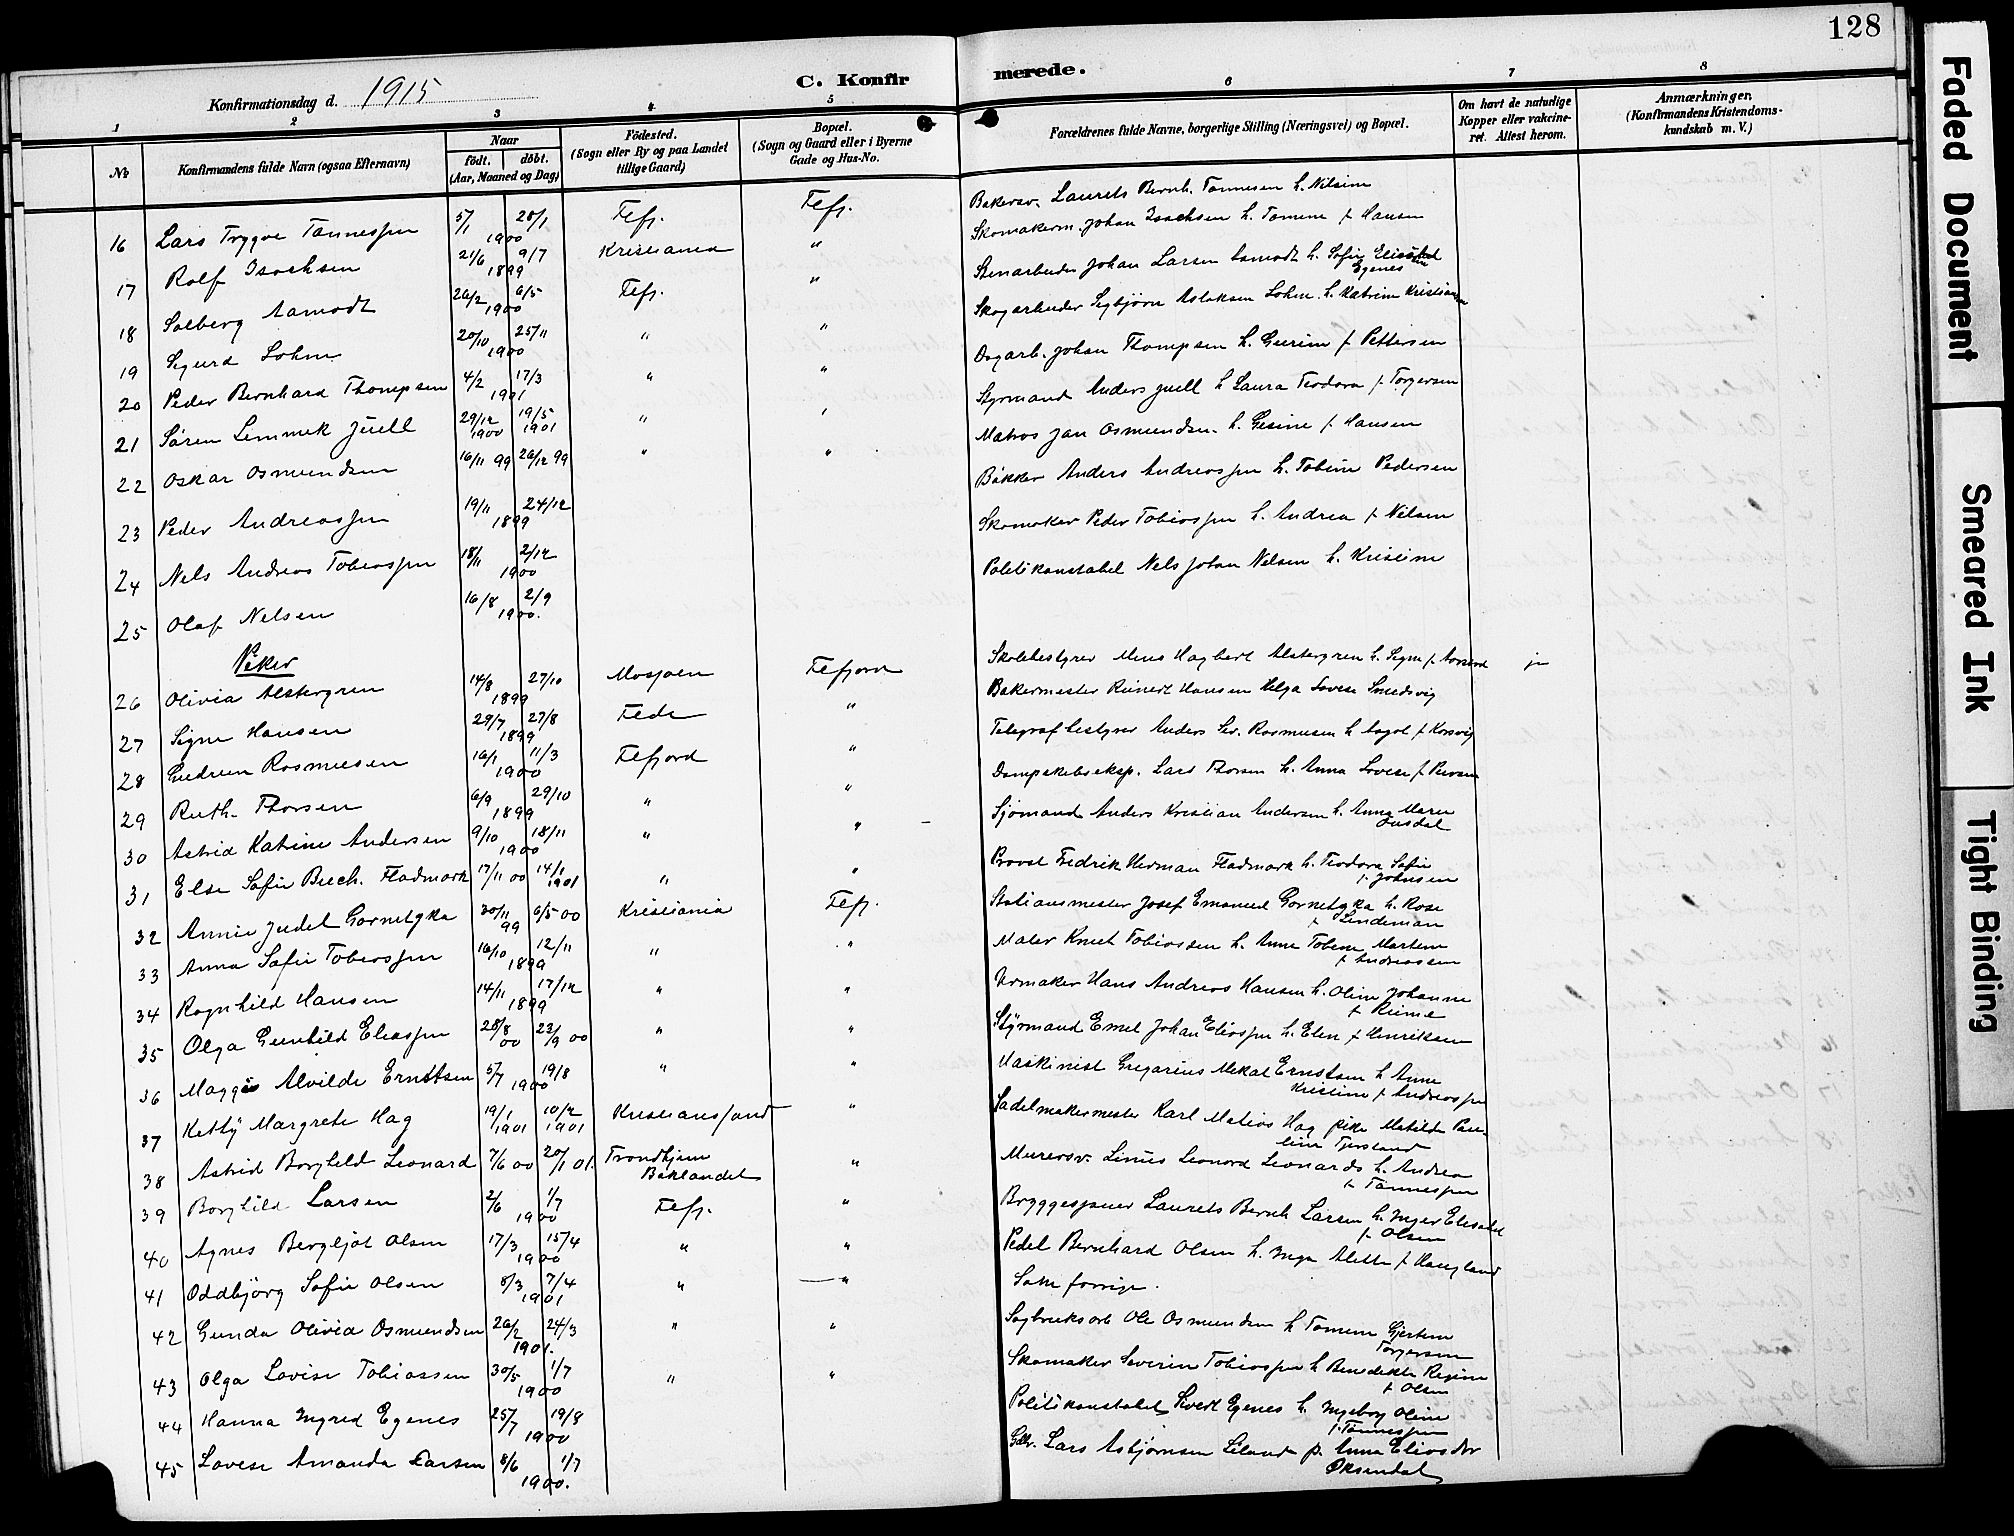 128
C. Konfirmerede.
Konfirmationsdag d. 1915
1 2 3 4 5 6 7 8
No
Konfirmandens fulde Navn (ogsaa Efternavn)
Naar
födt. döbt.
(Aar, Maaned og Dag)
Födested.
(Sogn eller By og paa Landet
tillige Gaard)
Bopæl.
(Sogn og Gaard eller i Byerne
Gade og Hus-No.
Forældrenes fulde Navne, borgerlige Stilling (Næringsvei) og Bopæl.
Om havt de naturlige
Kopper eller vakcine-
ret. Attest herom.
Anmærkninger.
(Konfirmandens Kristendoms-
kundskab m. V.)
16 Lars Trygve Tønnessen 5/1 28/1 1900 Flfj. Flfj. Bakersv. Laurets Bernh. Tønnesen h. Nilsine
17 Rolf Isachsen 21/6 9/7 1899 Kristiania " Skomakerm. Johan Isachsen h. Tomine f. Hansen
18 Solberg Aamodt 26/2 6/5 1900 Flfj. " Stenarbeider Johan Larsen Aamodt h. Sofie
Egenes
19 Sigurd Lohne 20/10 25/11 1900 " " Skogarbeider Sigbjørn Aslaksen Lohne h. Katrine Kristiansen
20 Peder Bernhard Thompsen 4/2 17/3 1901 " " Dagarb. Johan Thompsen h. Gurine f. Pettersen
21 Søren Lemmek Juell 29/12 1900 19/5 1901 " " Styrmand Anders Juell h. Laura Teodora f. Torgersen
22 Oskar Osmundsen 16/11 99 26/12 99 " " Matros Jan Osmundsen h. Gesine f. Hansen
23 Peder Andreassen 19/11 24/12 1899 Bøkker Anders Andreassen h. Tobine Pedersen
24 Nils Andreas Tobiassen 18/11 2/12 1900 Skomaker Peder Tobiassen h. Andrea f. Nilsen
25 Olaf Nelsen 16/8 2/9 1900. Politikonstabel Nels Johan Nelsen h. Kristine
Piker
26 Olivia Alstergren 14/8 27/10 1899 Mosjøen Flefjord Skolebestyrer Mons Hagbart Alstergren h. Signe f. ja
27 Signe Hansen 29/7 27/8 1899 Fede " Bakermester Reinert Hansen Helga Lovise Smedsvig
28 Gudrun Rasmusen 16/1 11/3 1900 Flefjord " Telegrafbestyrer Anders Sev. Rasmusen h. Aagot f. Korsvig
29 Ruth Thorsen 6/9 29/10 1899 " " Dampskibseksp. Lars Thorsen h. Anna Lovise f. Iversen
30 Astrid Katrine Andersen 9/10 18/11 1900 " " Sjømand Anders Kristian Andersen h. Anna Maren
Jusdal
31 Else Sofie Buch. Fladmark 17/11 00 14/1 1901 " " Provst Fredrik Herman Fladmark h. Teodora Sofie
f. Johnsen
32 Annie Judel Gornetgka 30/11 99 6/5 00 Kristiania Flefj. Stationsmester Josef Emanuel Gornetgka h. Rose
f. Lindeman
33 Anna Sofie Tobiassen 16/10 12/11 1899 " " Maler Knut Tobiassen h. Anne Tobine Martine
f. Andreassen
34 Ragnhild Hansen 14/11 17/12 1899 " " Urmaker Hans Andreas Hansen h. Oline Johanne
f. Reime
35 Olga Gunhild Eliassen 28/8 00 23/9 00 " " Styrmand Emel Johan Eliassen h. Elen f. Henriksen
36 Maggie Alvilde Ernstsen 5/7 19/8 1900 " " Maskinist Gregarius Mekal Ernstsen h. Anne
Kristine f. Andreassen
37 Ketty Margrete Hag 19/1 1901 10/2 1901 Kristiansand " Sadelmakermester Karl Matias Hag pike Matilde Pau-
line Tjersland
38 Astrid Borghild Leonard 7/6 00 20/1 01. Trondhjem
Baklandet " Murersv. Linus Leonard Leonards h. Andrea
f. Tønnessen
39 Borghild Larsen 2/6 1/7 1900 Flefj. " Bryggesjauer Laurets Bernh. Larsen h. Inger Elisabet
f. Olsen
40 Agnes Bergljot Olsen 17/3 15/4 1900 " " Pedel Bernhard Olsen h. Inga Alette f. Haugland
41 Oddbjörg Sofie Olsen 8/3 7/4 1901 " " Som forrige.
42 Gunda Olivia Osmundsen 26/2 24/3 1901. " " Sagbruksarb Ole Osmundsen h. Tomine Gjertine
Torgersen
43 Olga Lovise Tobiassen 30/5 1/7 1900 " " Skomaker Severin Tobiassen h. Benedikte Regine
f. Olsen
44 Hanna Ingred Egenes 25/7 19/8 1900 Politikonstabel Kvert Egenes h. Ingeborg Oline
f. Tønnessen
45 Lovise Amanda Larsen 8/6 1/7 1900. Gbr. Lars Asbjørnsen Eiland p. Anna Eliasdtr
Øksendal
Faded Document
Smeared Ink
Tight Binding